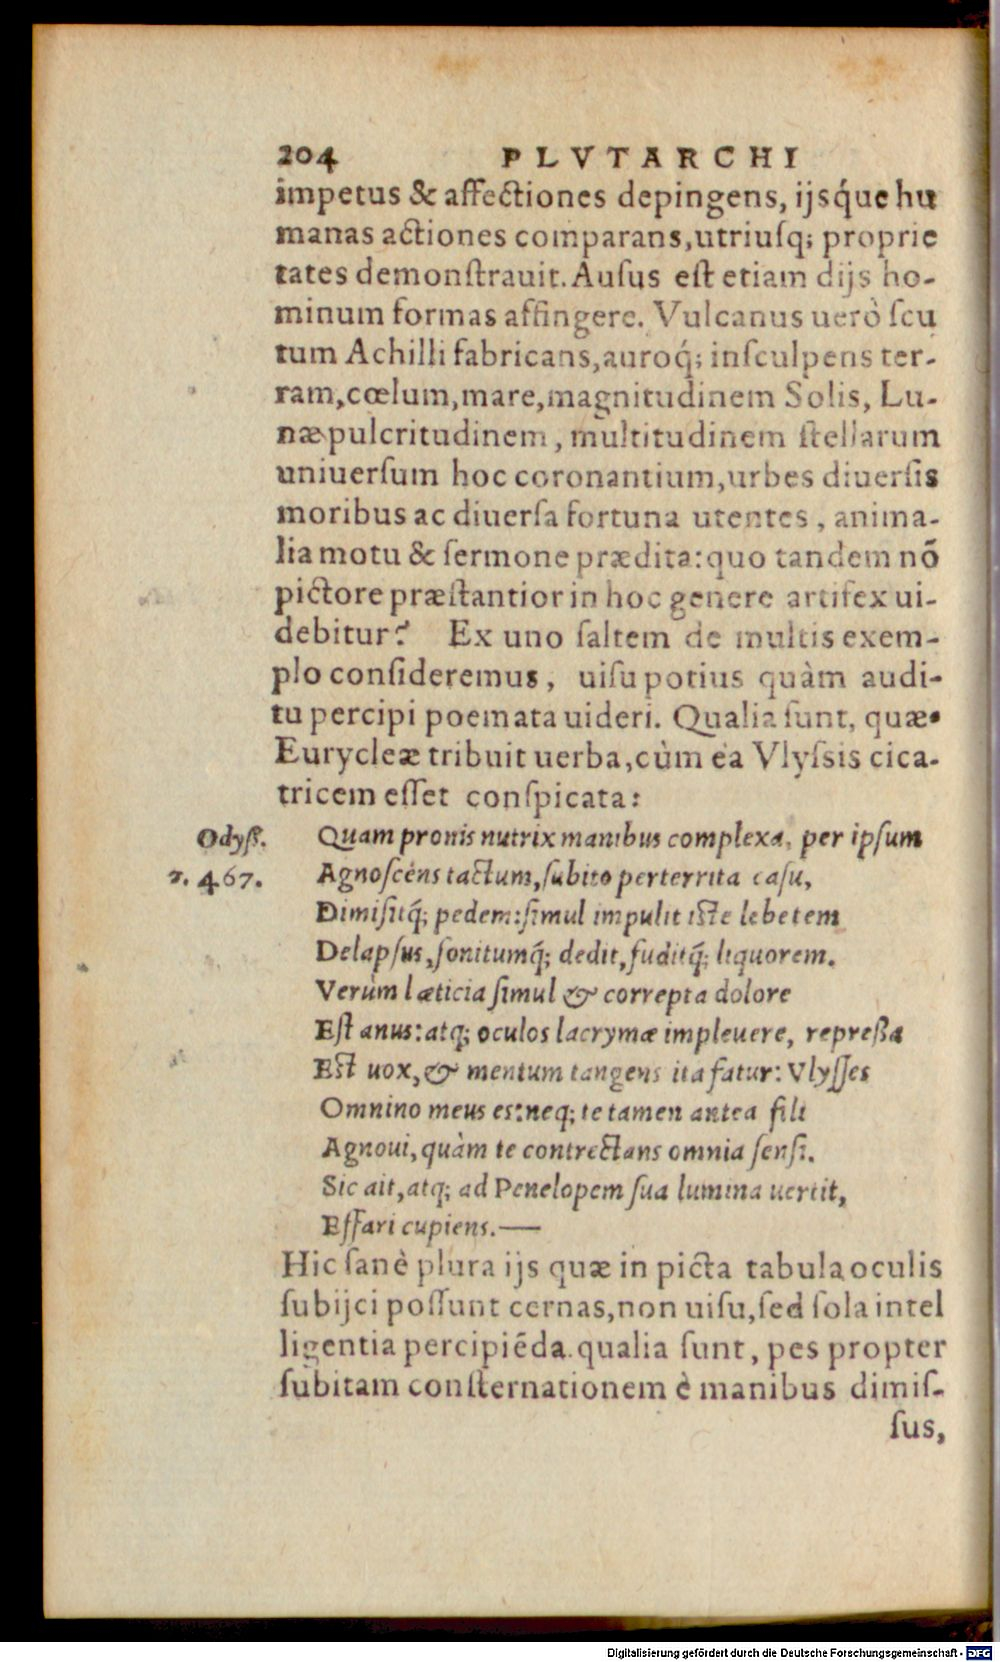 204 PLVTARCHI
impetus & affectiones depingens, ijsq́ue hu
manas actiones comparans, utriuſq; proprie
tates demonſtrauit. Auſus eſt etiam dijs ho-
minum formas affingere. Vulcanus uerò ſcu
tum Achilli fabricans, auroq́; inſculpens ter-
ram, cœlum, mare, magnitudinem Solis, Lu-
næ pulcritudinem, multitudinem ſtellarum
uniuerſum hoc coronantium, urbes diuerſis
moribus ac diuerſa fortuna utentes, anima-
lia motu & ſermone prædita: quo tandem nõ
pictore præſtantior in hoc genere artifex ui-
debitur? Ex uno ſaltem de multis exem-
plo conſideremus, uiſu potius quàm audi-
tu percipi poemata uideri. Qualia ſunt, quæ
Eurycleæ tribuit uerba, cùm ea Vlyſsis cica-
tricem eſſet conſpicata:
Odyſſ. Quam pronis nutrix manibus complexa, per ipſum
τ. 467. Agnoſcens tactum, ſubito perterrita caſu,
Dimiſitq́; pedem: ſimul impulit iſte lebetem
Delapſus, ſonitumq́; dedit, fuditq́; liquorem.
Verùm læticia ſimul & correpta dolore
Eſt anus: atq; oculos lacrymæ impleuere, repreßa
Eſt uox, & mentum tangens ita fatur: Vlyſſes
Omnino meus es: neq; te tamen antea fili
Agnoui, quàm te contrectans omnia ſenſi.
Sic ait, atq; ad Penelopem ſua lumina uertit,
Effari cupiens.—
Hic ſanè plura ijs quæ in picta tabula oculis
ſubijci poſſunt cernas, non uiſu, ſed ſola intel
ligentia percipiẽda. qualia ſunt, pes propter
ſubitam conſternationem è manibus dimiſ-
ſus,
Digitalisierung gefördert durch die Deutsche Forschungsgemeinschaft - DFG